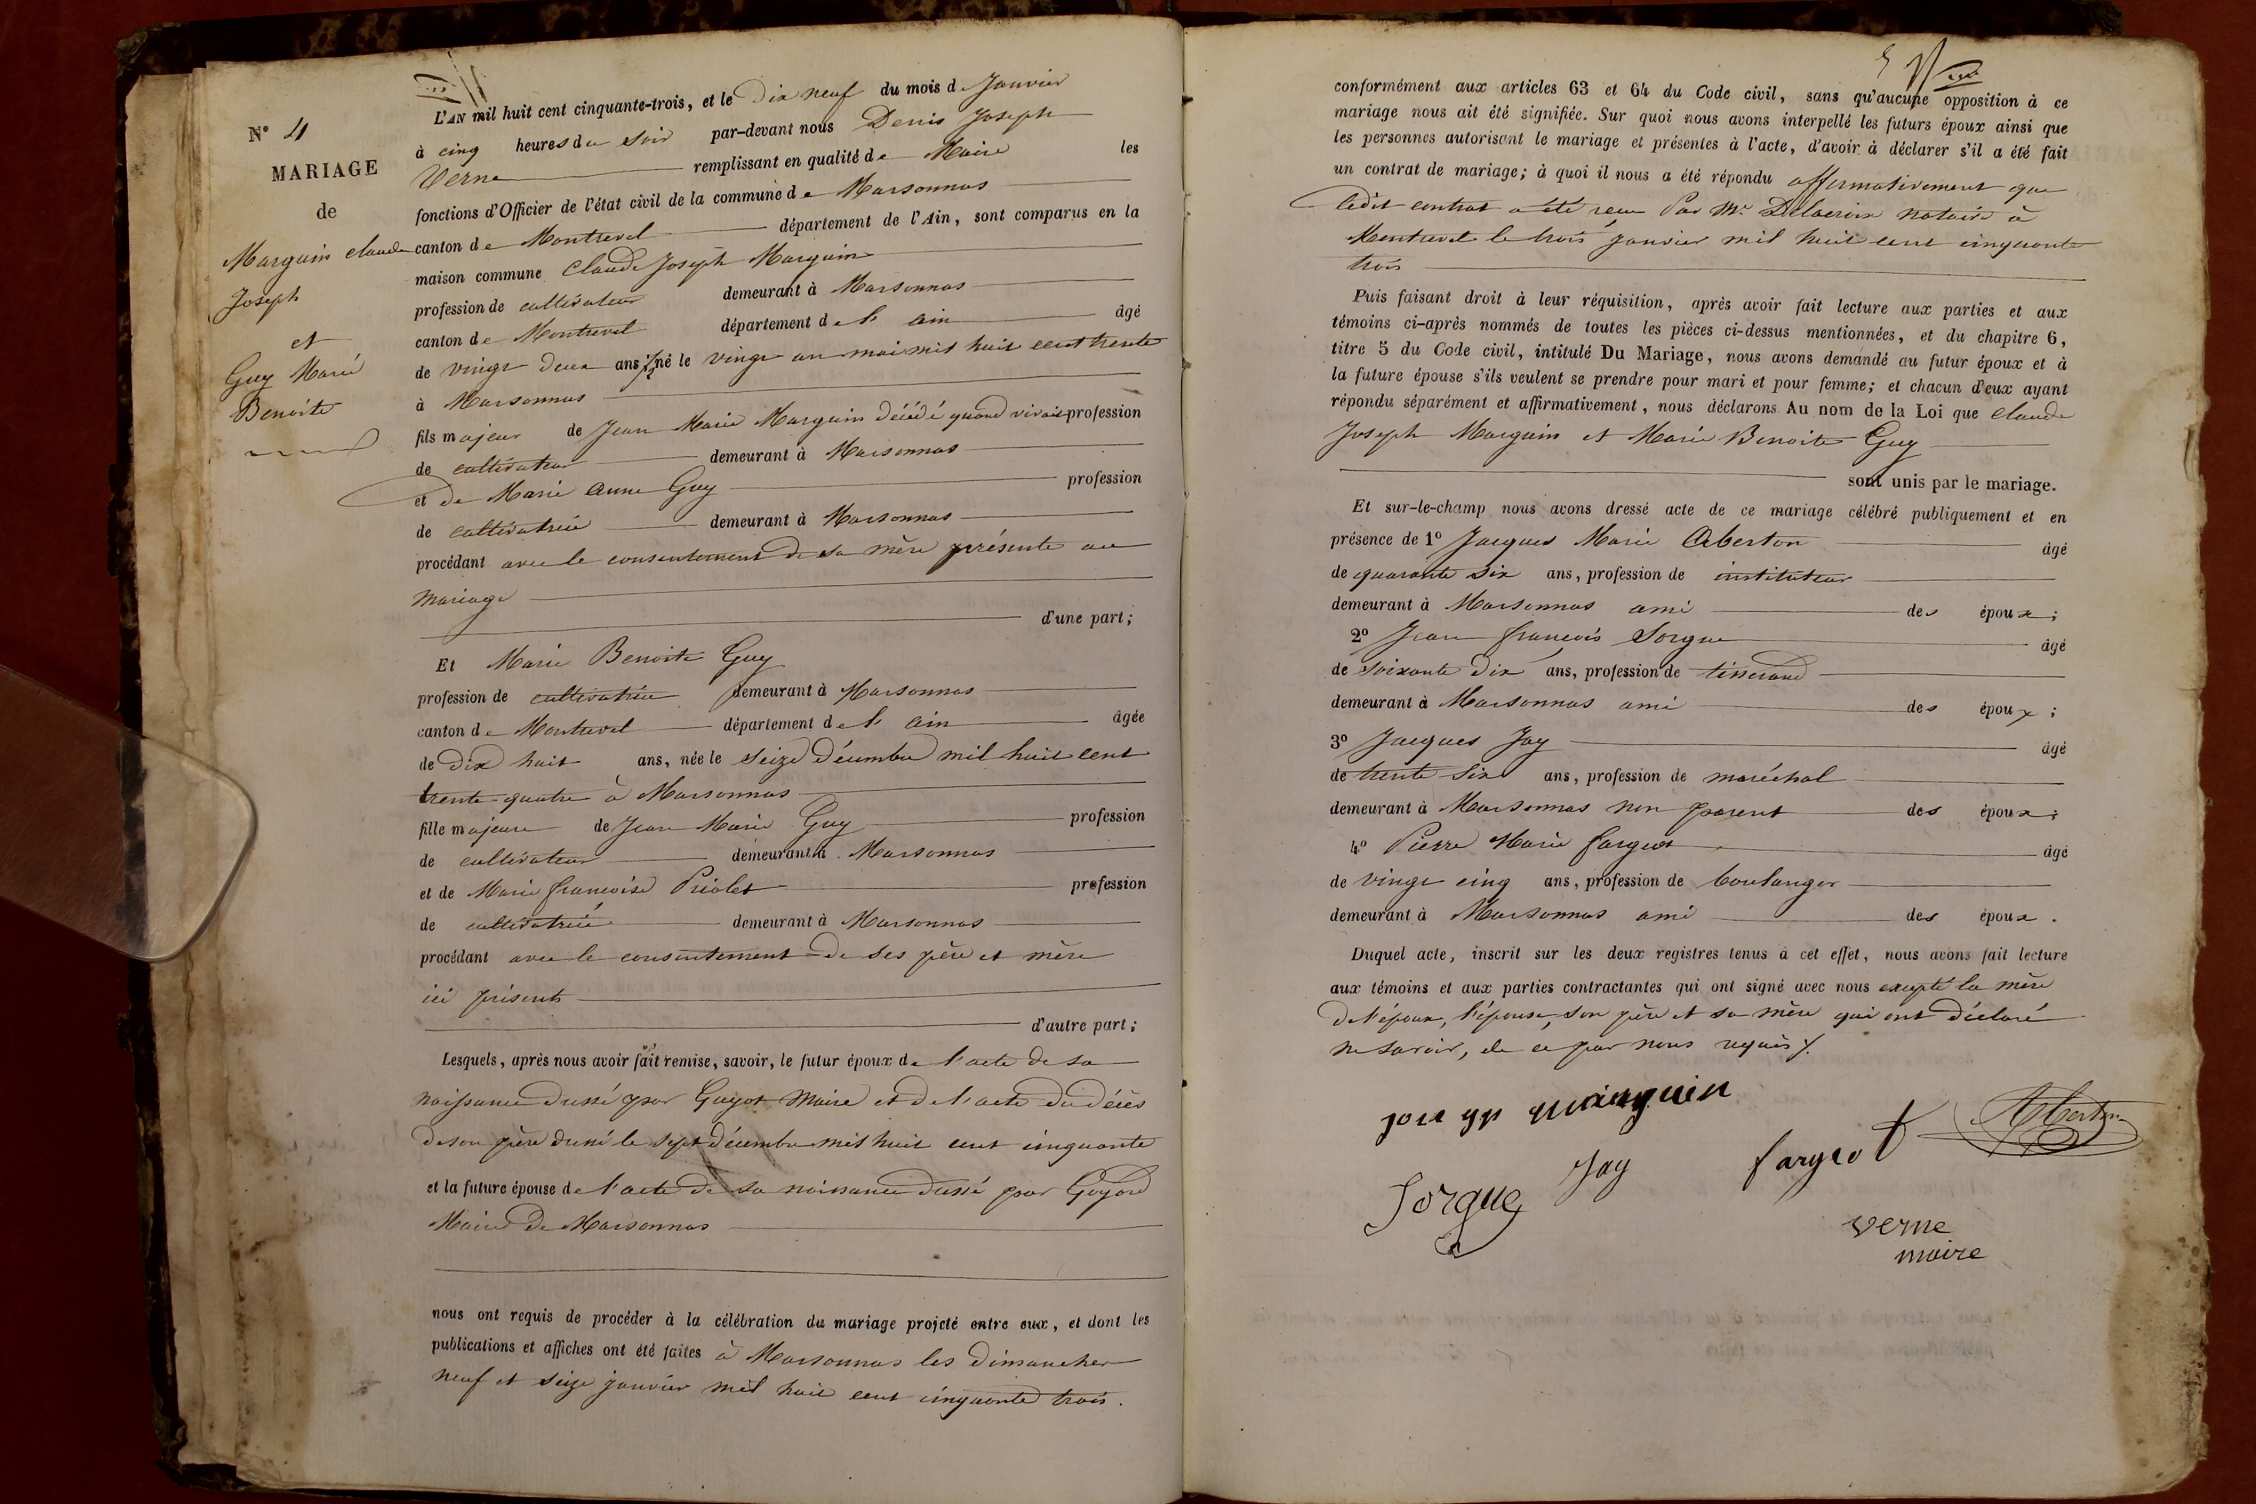 L'AN mil huit cent cinquante-trois, et le Dix neuf du mois de Janvier
à cinq heures du soir par-devant nous Denis Joseph
Verne remplissant en qualité de Maire les
fonctions d'Officier de l'état civil de la commune de Marsonnas
canton de Montrevel département de l'Ain, sont comparus en la
maison commune Claude Joseph Marguin
profession de cultivateur demeurant à Marsonnas
canton de Montrevel département de l' ain âgé
de vingt deux ans né le vingt un mai mil huit cent trente
à Marsonnas
fils majeur de Jean Marie Marguin décédé quand vivait profession
de cultivateur demeurant à Marsonnas
et de Marie Anne Guy profession
de cultivatrice demeurant à Marsonnas
procédant avec le consentement de sa mère présente au
mariage
d'une part;
N° 4
MARIAGE
de
Marguin Claude
Joseph
et
Guy Marie
Benoite
Et Marie Benoite Guy
profession de cultivatrice demeurant à Marsonnas
canton de Montrevel département de l' ain âgée
de dix huit ans, née le seize Décembre mil huit cent
trente quatre à Marsonnas
fille majeure de Jean Marie Guy profession
de cultivateur demeurant à Marsonnas
et de Marie françoise Priolet profession
de cultivatrice demeurant à Marsonnas
procédant avec le consentement de ses père et mère
ici présents
d'autre part;
Lesquels, après nous avoir fait remise, savoir, le futur époux de l'acte de sa
naissance dressé par Guyot Maire et de l'acte du décès
de son père dressé le sept décembre mil huit cent cinquante
et la future épouse de l'acte de sa naissance dressé par Guyot
Maire de Marsonnas
nous ont requis de procéder à la célébration du mariage projeté entre eux, et dont les
publications et affiches ont été faites à Marsonnas les dimanches
neuf et seize janvier mil huit cent cinquante trois.
conformément aux articles 63 et 64 du Code civil, sans qu'aucune opposition à ce
mariage nous ait été signifiée. Sur quoi nous avons interpellé les futurs époux ainsi que
les personnes autorisant le mariage et présentes à l'acte, d'avoir à déclarer s'il a été fait
un contrat de mariage; à quoi il nous a été répondu affirmativement que
ledit contrat a été reçu Par Me Delacroix notaire à
Montrevel le trois janvier mil huit cent cinquante
trois
Puis faisant droit à leur réquisition, après avoir fait lecture aux parties et aux
témoins ci-après nommés de toutes les pièces ci-dessus mentionnées, et du chapitre 6,
titre 5 du Code civil, intitulé Du Mariage, nous avons demandé au futur époux et à
la future épouse s'ils veulent se prendre pour mari et pour femme; et chacun d'eux ayant
répondu séparément et affirmativement, nous déclarons Au nom de la Loi que Claude
Joseph Marguin et Marie Benoite Guy
sont unis par le mariage.
Et sur-le-champ nous avons dressé acte de ce mariage célébré publiquement et en
présence de 1° Jacques Marie Aberton âgé
de quarante six ans, profession de instituteur
demeurant à Marsonnas ami des époux;
2° Jean françois Sorgue âgé
de soixante dix ans, profession de tisserand
demeurant à Marsonnas ami des époux;
3° Jacques Jay âgé
de trente six ans, profession de maréchal
demeurant à Marsonnas non parent des époux;
4° Pierre Marie fargeot âgé
de vingt cinq ans, profession de boulanger
demeurant à Marsonnas ami des époux.
Duquel acte, inscrit sur les deux registres tenus à cet effet, nous avons fait lecture
aux témoins et aux parties contractantes qui ont signé avec nous excepté la mère
de l'époux, l'épouse, son père et sa mère qui ont déclaré
ne savoir, de ce par nous requis.
Aberton
Jay fargeot
Sorgue
verne
maire